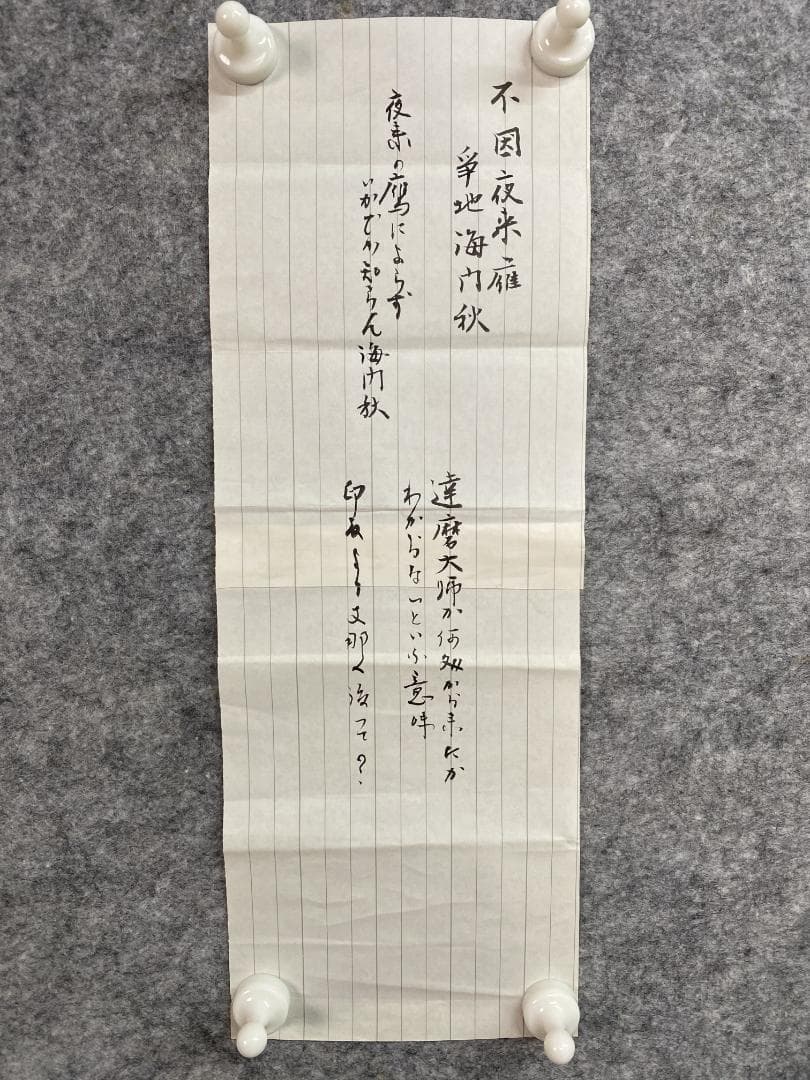 不因夜来雁
争地海門秋
夜来の鷹によらず
いかでか知らん海門秋
達磨大師が何処から来たか
わからないといふ意味
印度より支那へ渡って？